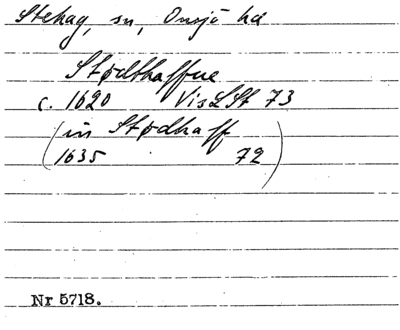 Stehag, sn, Onsjö hd
Stødthaffue
c. 1620 VisLSt 73
(in Stødhaff
1635 72)
Nr 5718.